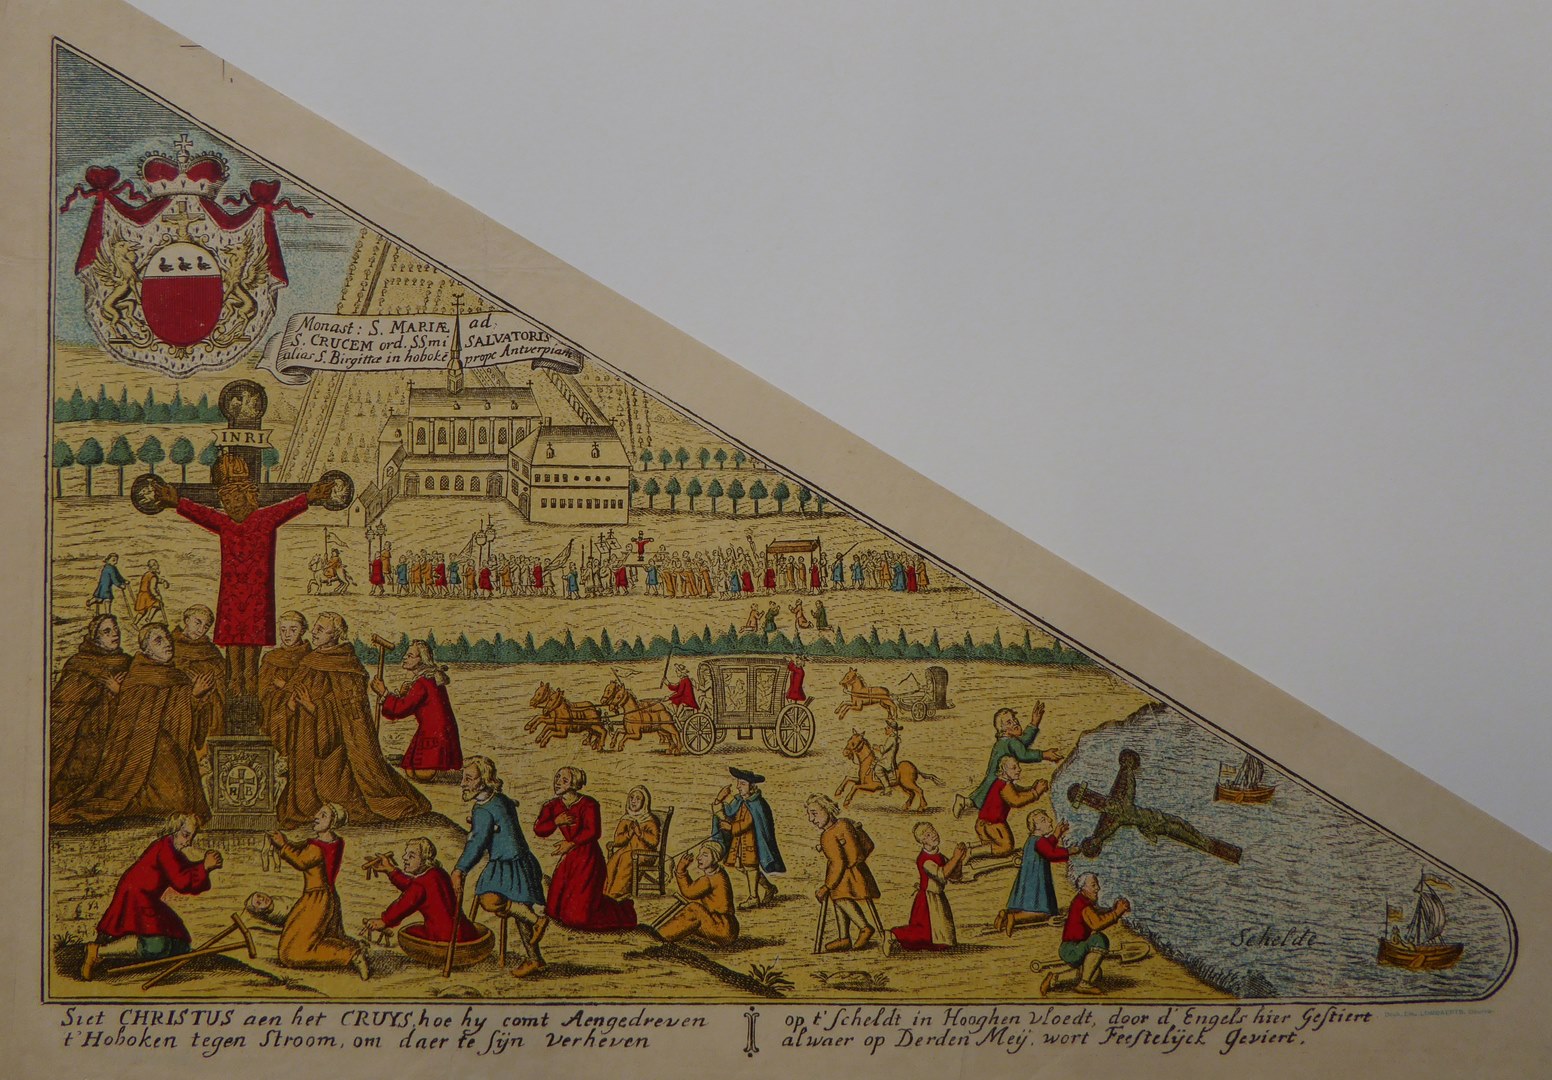 Monast: S. MARIÆ ad
S. CRUCEM ord. SSmi SALVATORIS
alias S. Birgittæ in hobokẽ prope Antverpiam
INRI
Schelde
Siet CHRISTUS aen het CRUYS, hoe hy comt Aengedreven
t'Hoboken tegen Stroom, om daer te sijn verheven
op t'Scheldt in Hooghen vloedt, door d'Engels hier Gestiert
alwaer op Derden Meij, wort Feestelijck Geviert.